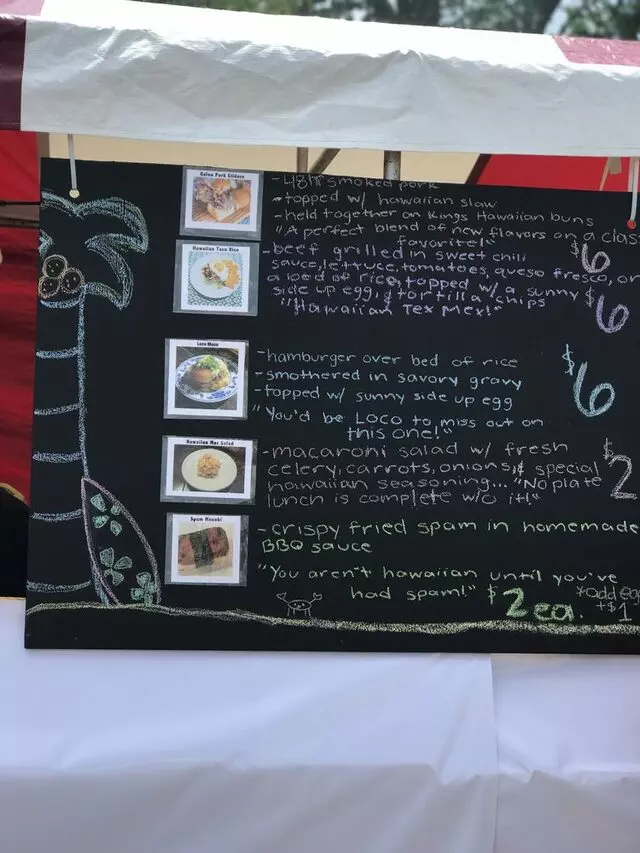 Kalua Pork Sliders
-48hr smoked pork
-topped w/ hawaiian slaw
-held together on Kings Hawaiian buns
"A perfect blend of new flavors on a clas
favorite!"
$6
Hawaiian Taco Rice
-beef grilled in sweet chili
sauce, lettuce, tomatoes, queso fresco, on
a bed of rice, topped w/ a sunny
side up egg, & tortilla chips
"Hawaiian Tex Mex!"
$6
Loco Moco
-hamburger over bed of rice
-smothered in savory gravy
-topped w/ sunny side up egg
"You'd be Loco to miss out on
this one!"
$6
Hawaiian Mac Salad
-macaroni salad w/ fresh
celery, carrots, onions, & special
hawaiian seasoning... "No plate
lunch is complete w/o it!"
$2
Spam Musubi
-crispy fried spam in homemade
BBQ sauce
"You aren't hawaiian until you've
had spam!" $2 ea.
*add egg
+$1